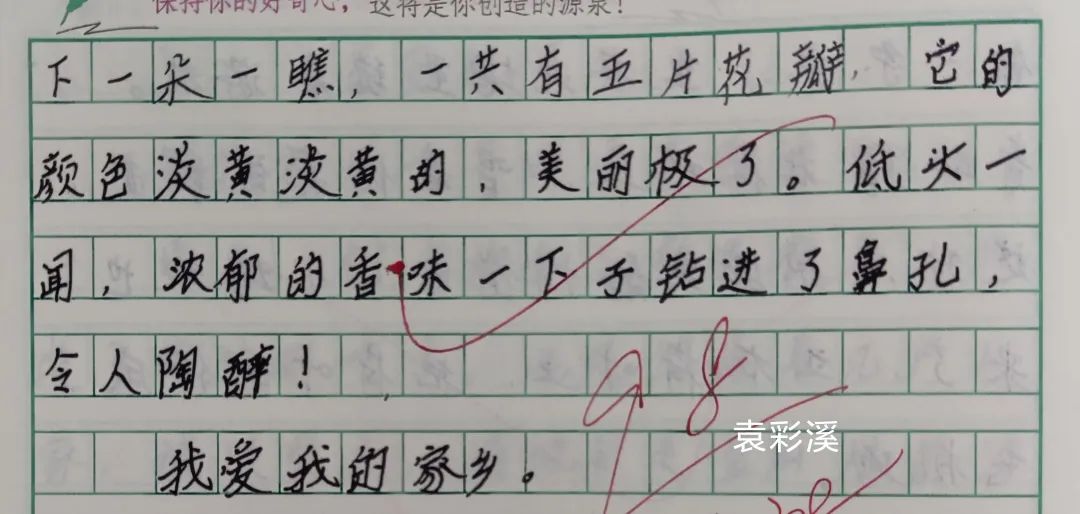 保持你的好奇心，这将是你创造的源泉！
下一朵一瞧，一共有五片花瓣，它的
颜色淡黄淡黄的，美丽极了。低头一
闻，浓郁的香味一下子钻进了鼻孔，
令人陶醉！
98
袁彩溪
我爱我的家乡。